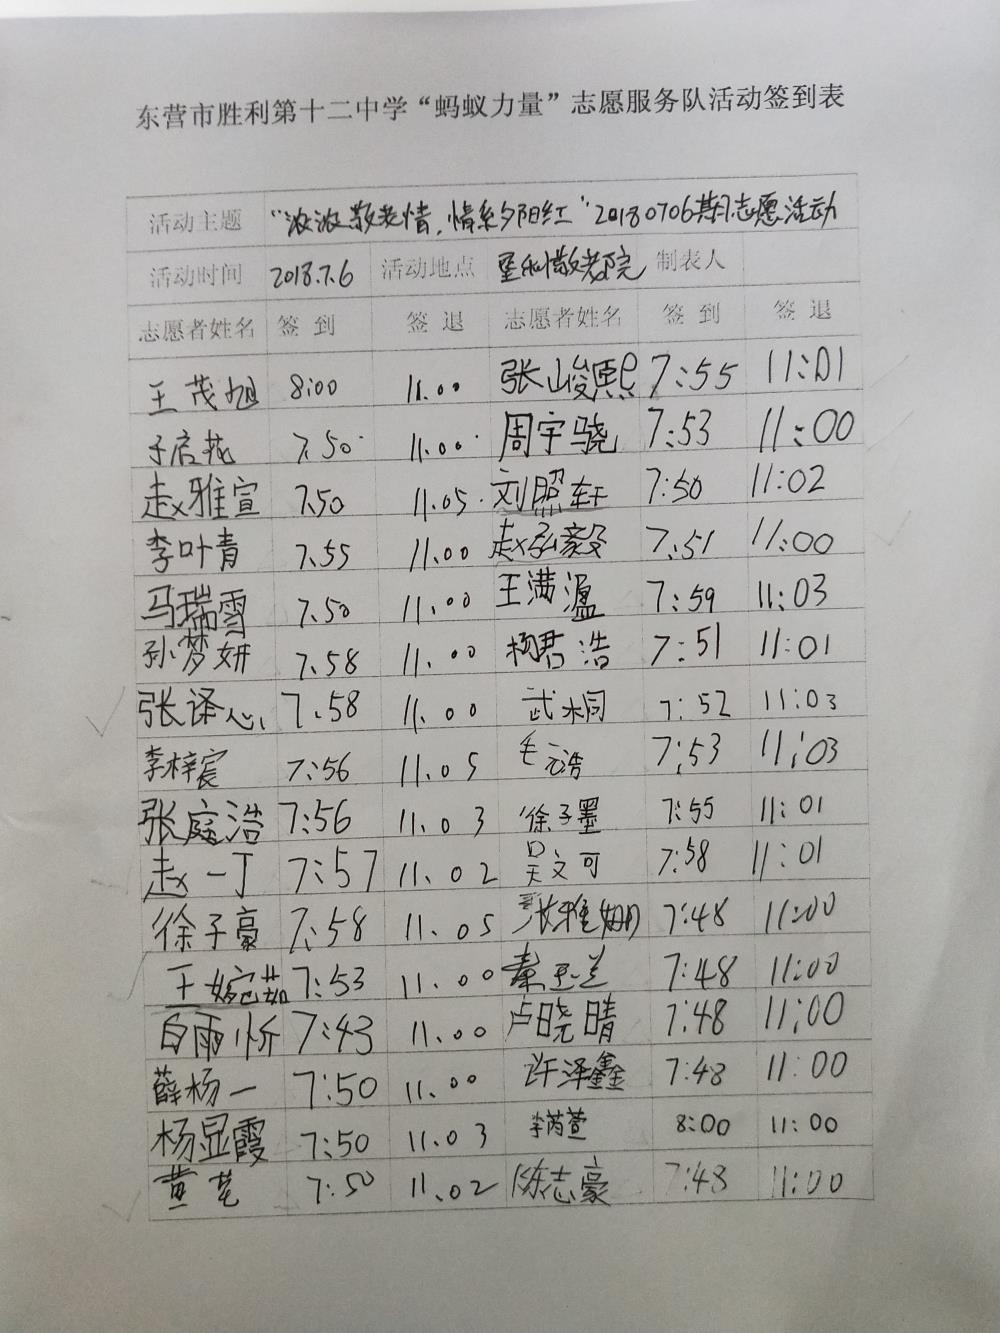 东营市胜利第十二中学“蚂蚁力量”志愿服务队活动签到表
活动主题 “浓浓敬老情，情系夕阳红”20180706期志愿活动
活动时间 2018.7.6 活动地点 垦利敬老院 制表人
志愿者姓名 签 到 签 退 志愿者姓名 签 到 签 退
王茂旭 8:00 11.00 张峻熙 7:55 11:01
7.50 11.00 周宇骁 7:53 11:00
赵雅宣 7.50 11.05 刘照轩 7:50 11:02
李叶青 7.55 11.00 赵弘毅 7:51 11:00
马瑞雪 7.50 11.00 王满溫 7:59 11:03
孙梦妍 7.58 11.00 杨君浩 7:51 11:01
张译心 7.58 11.00 武木桐 7:52 11:03
李梓宸 7:56 11.05 毛云浩 7:53 11:03
张庭浩 7:56 11.03 徐子墨 7:55 11:01
赵一丁 7:57 11.02 吴文可 7:58 11:01
徐子豪 7:58 11.05 张雅娜 7:48 11:00
王婉茹 7:53 11.00 秦 7:48 11:00
白雨忻 7:43 11.00 卢晓晴 7:48 11:00
薛杨一 7:50 11.00 许泽鑫 7:48 11:00
杨显霞 7:50 11.03 李芮萱 8:00 11:00
黄 7:50 11.02 陈志豪 7:48 11:00